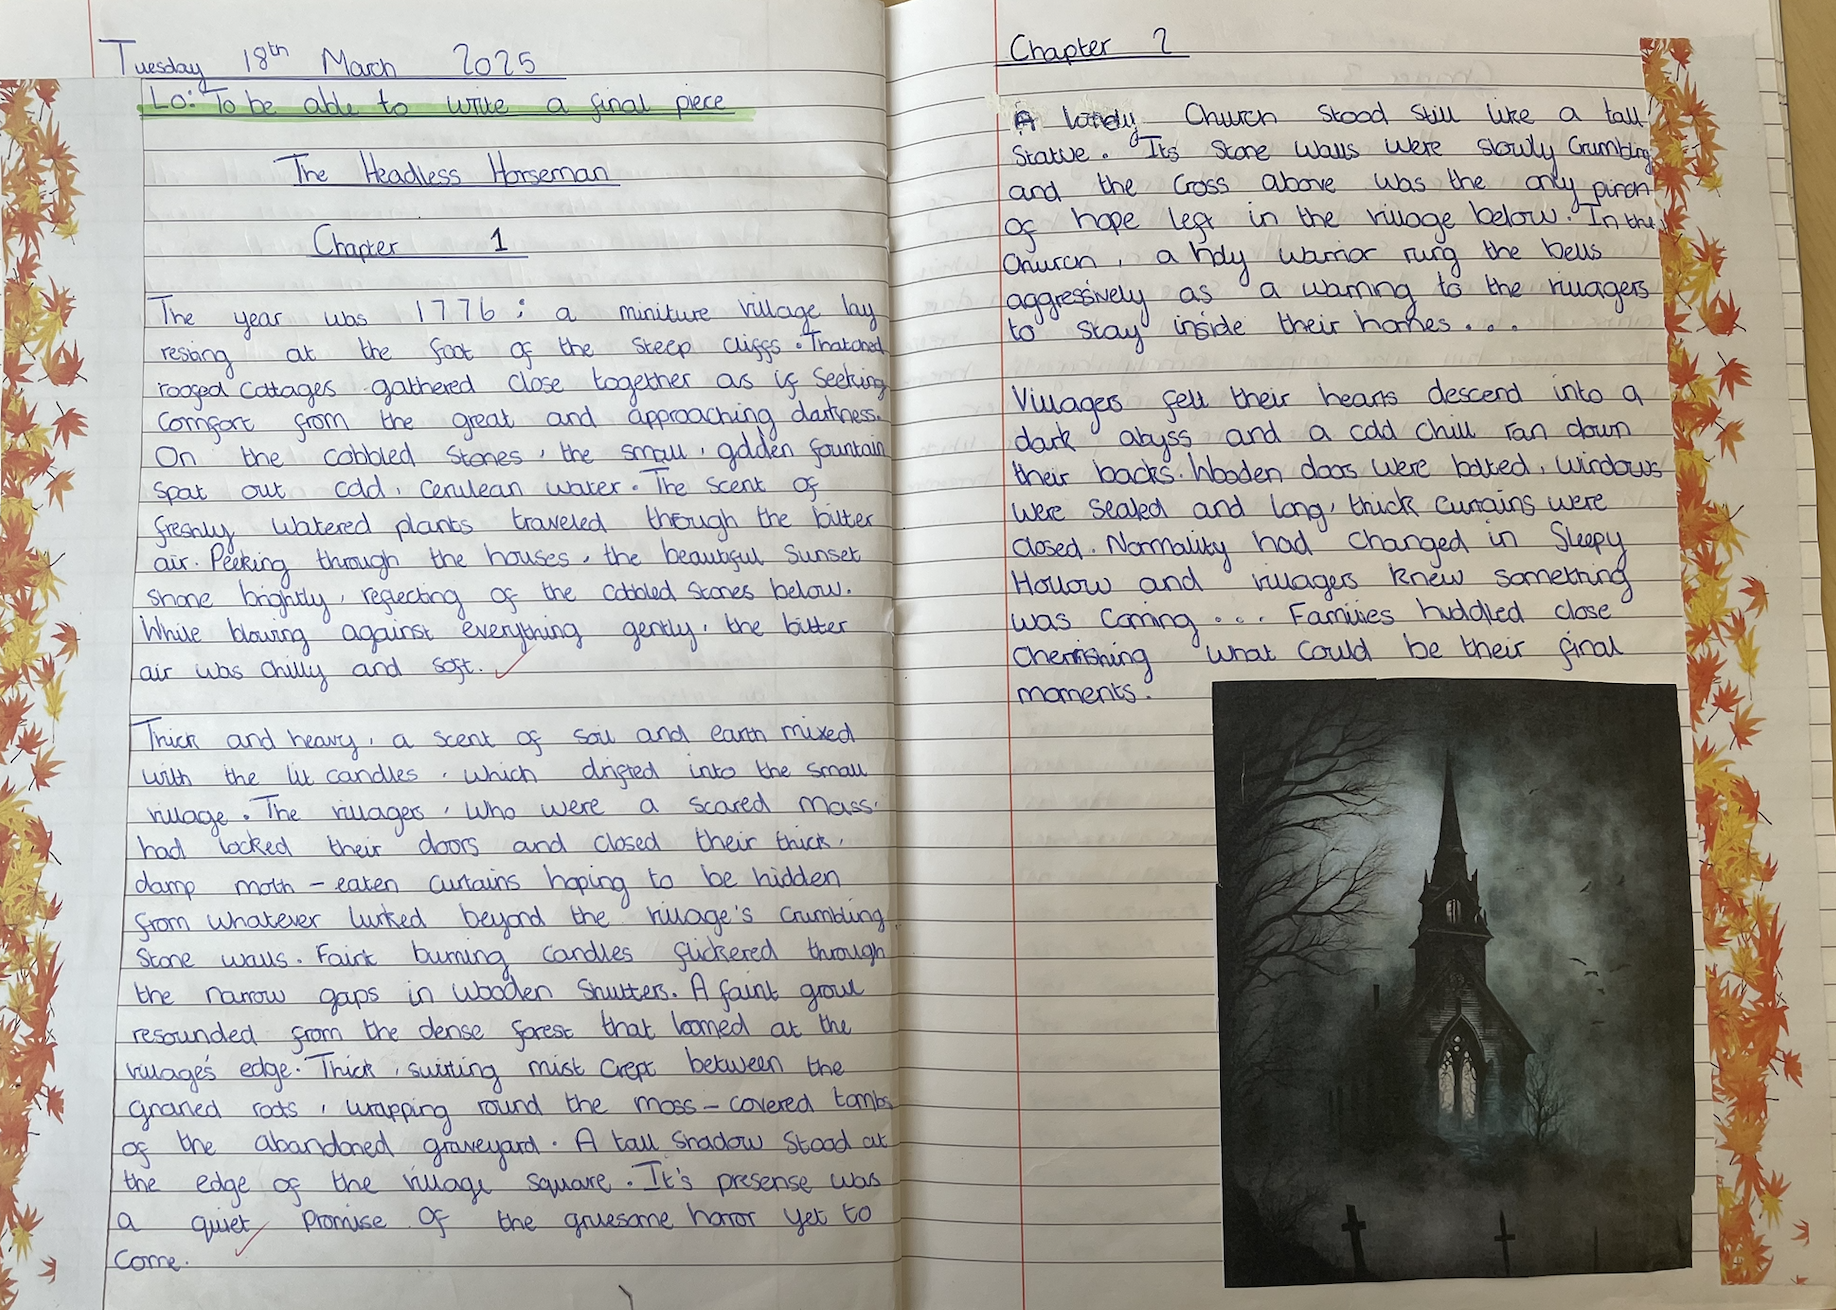 Tuesday 18th March 2025
Lo: To be able to write a final piece
The Headless Horseman
Chapter 1
The year was 1776; a miniture village lay
resting at the foot of the steep cliffs. Thatched
roofed cottages gathered close together as if seeking
comfort from the great and approaching darkness.
On the cobbled stones, the small, golden fountain
spat out cold, cerulean water. The scent of
freshly watered plants traveled through the bitter
air. Peeking through the houses, the beautiful sunset
shone brightly, reflecting of the cobbled stones below.
While blowing against everything gently, the bitter
air was chilly and soft.
Thick and heavy, a scent of soil and earth mixed
with the lit candles, which drifted into the small
village. The villagers, who were a scared mass,
had locked their doors and closed their thick,
damp moth-eaten curtains hoping to be hidden
from whatever lurked beyond the village's crumbling
stone walls. Faint burning candles flickered through
the narrow gaps in wooden shutters. A faint growl
resounded from the dense forest that loomed at the
village's edge. Thick, swirling mist crept between the
gnarled roots, wrapping round the moss-covered tombs
of the abandoned graveyard. A tall shadow stood at
the edge of the village square. It's presense was
a quiet promise of the gruesome horror yet to
come.
Chapter 2
A lonely church stood still like a tall
statue. Its stone walls were slowly crumbling
and the cross above was the only pinch
of hope left in the village below. In the
church, a holy warrior rung the bells
aggressively as a warning to the villagers
to stay inside their homes...
Villagers felt their hearts descend into a
dark abyss and a cold chill ran down
their backs. Wooden doors were bolted, windows
were sealed and long, thick curtains were
closed. Normality had changed in Sleepy
Hollow and villagers knew something
was coming... Families huddled close
cherishing what could be their final
moments.